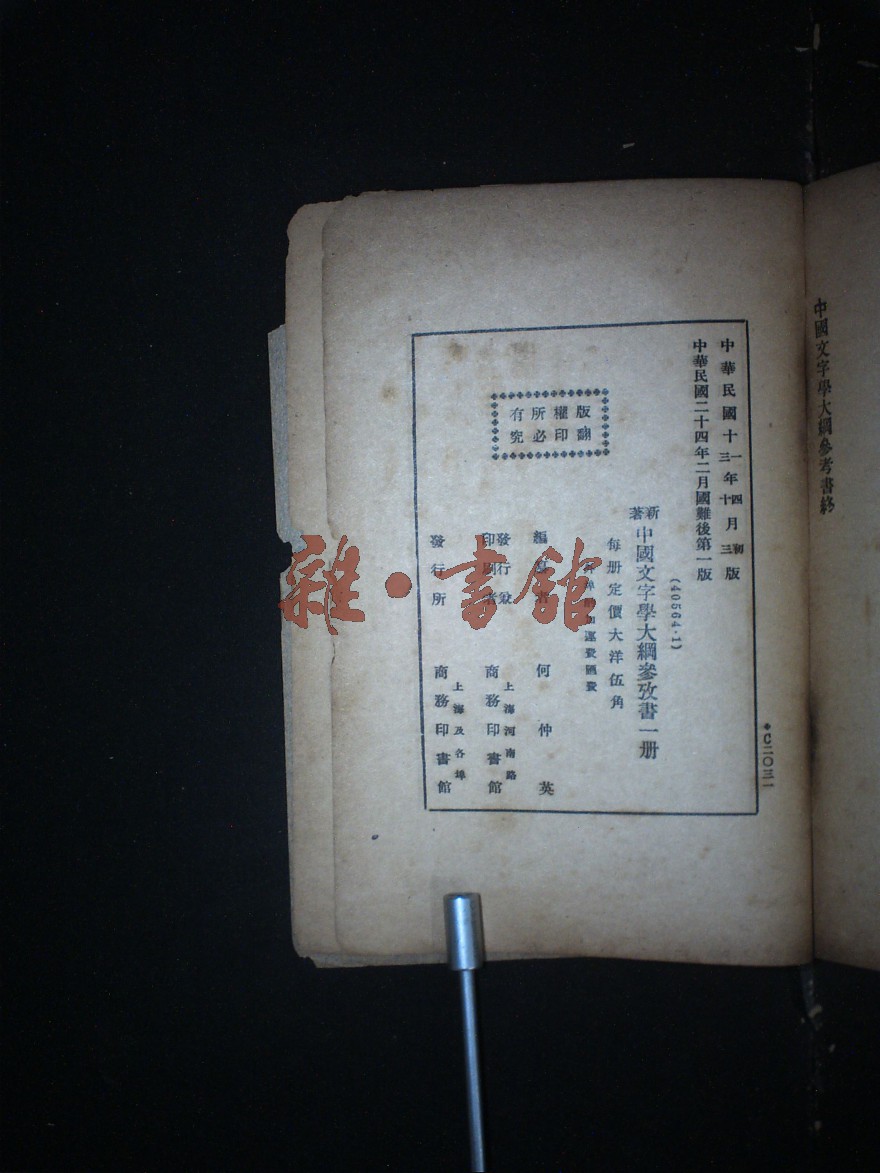 中國文字學大綱參考書終
*C二〇三一
中華民國十一三年四十月初三版
中華民國二十四年二月國難後第一版
(40564·1)
新著中國文字學大綱參攷書一册
每册定價大洋伍角
外埠酌加運費匯費
版權所有
翻印必究
編纂者 何仲英
發行兼印刷者 上海河南路 商務印書館
發行所 上海及各埠 商務印書館
雜·書館